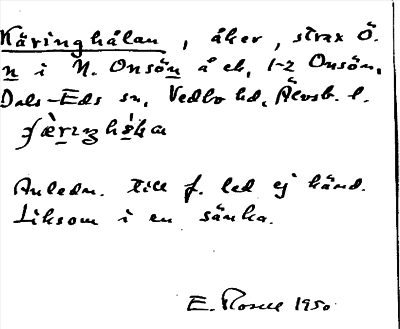 Käringhålan, åker, strax Ö.
n i N. Onsön å ek, 1-2 Onsön,
Dals-Eds sn, Vedbo hd, Älvsb. l.
Anledn. till f. led ej känd.
Liksom i en sänka.
E. 1950